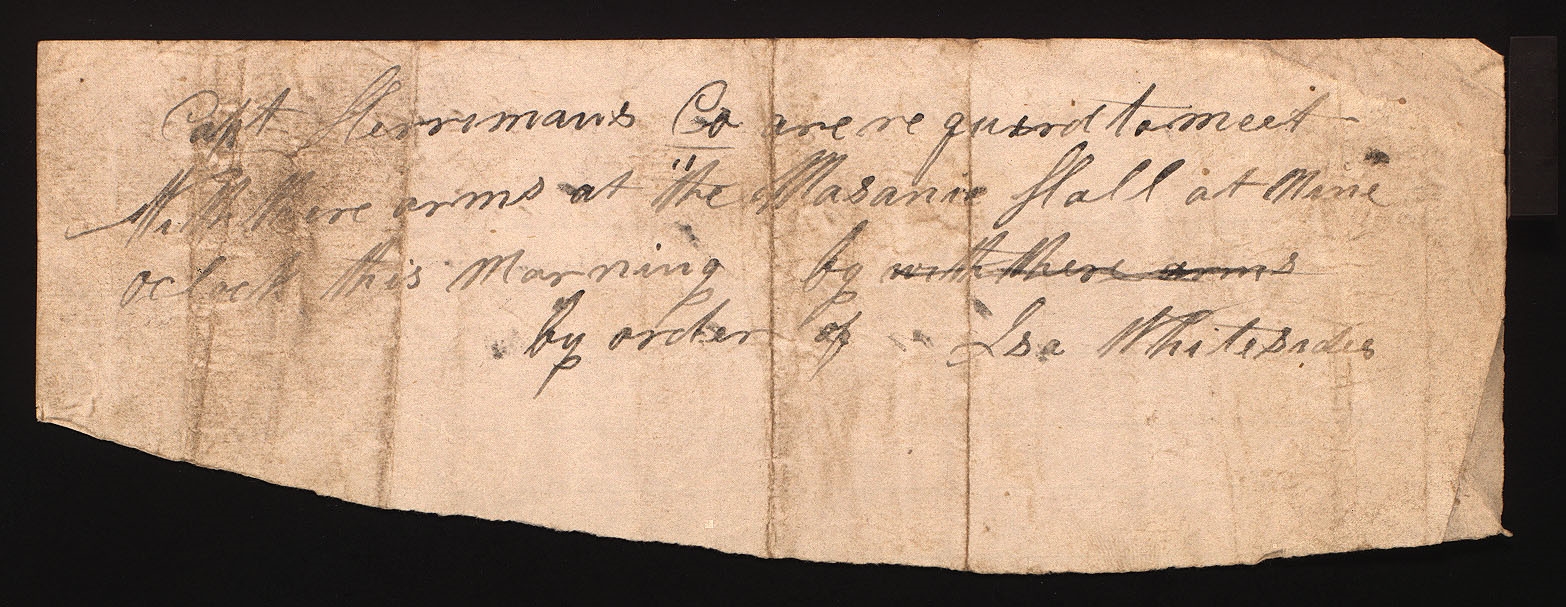 Capt Herrimans Co are requird to meet
With there arms at the Masanic Hall at Nine
oclock this Morning by with there arms
by order of Isa Whitesides